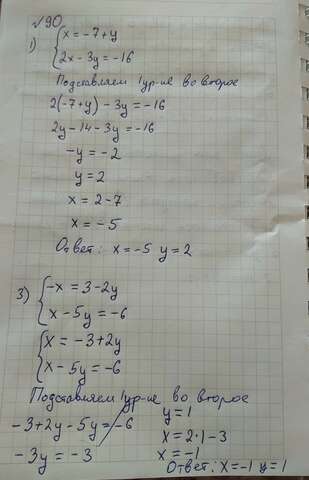 №90
1) { x = -7+y
2x - 3y = -16
Подставляем 1ур-ие во второе
2(-7+y) - 3y = -16
2y - 14 - 3y = -16
-y = -2
y = 2
x = 2-7
x = -5
Ответ: x = -5 y = 2
3) { -x = 3-2y
x - 5y = -6
{ x = -3+2y
x - 5y = -6
Подставляем 1ур-ие во второе
-3+2y - 5y = -6
-3y = -3
y = 1
x = 2·1-3
x = -1
Ответ: x = -1 y = 1